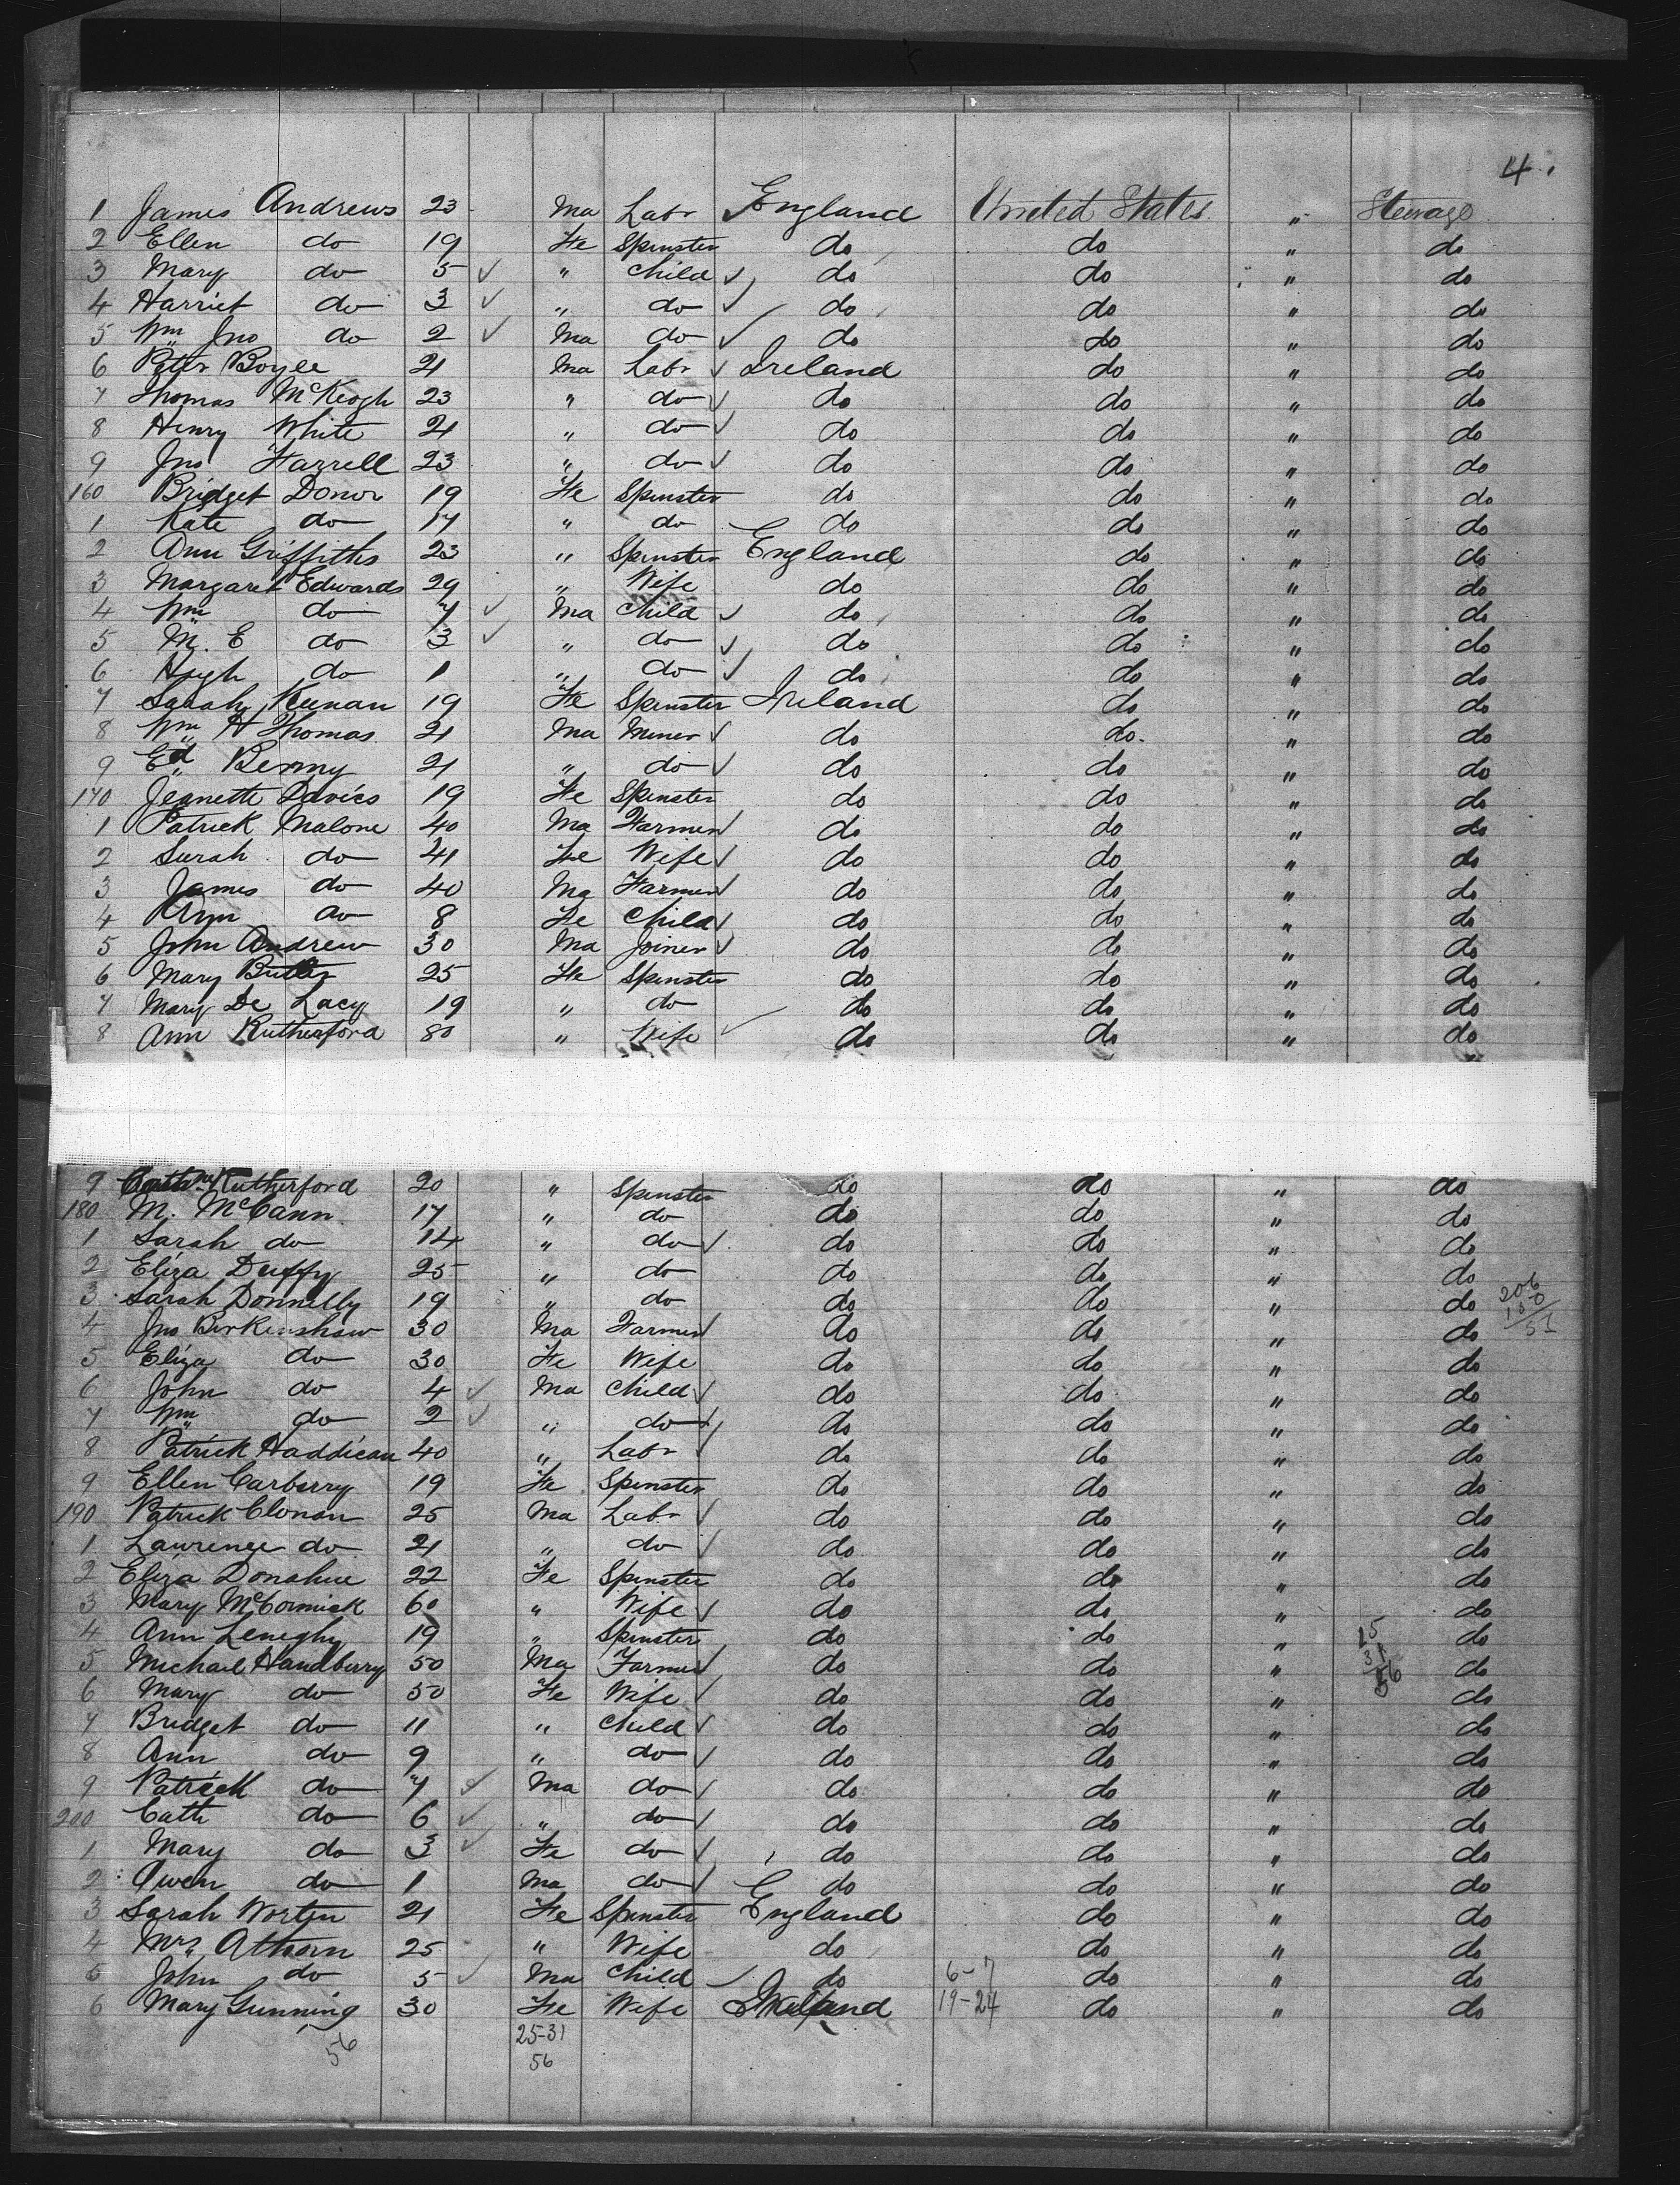 4.
1 James Andrews 23 Ma Labr England United States " Steerage
2 Ellen do 19 Fe Spinster do do " do
3 Mary do 5 ✓ " Child ✓ do do " do
4 Harriet do 3 ✓ " do ✓ do do " do
5 Wm Jno do 2 ✓ Ma do ✓ do do " do
6 Peter Boyle 21 Ma Labr ✓ Ireland do " do
7 Thomas McKeogh 23 " do ✓ do do " do
8 Henry White 21 " do ✓ do do " do
9 Jno Farrell 23 " do ✓ do do " do
160 Bridget Donor 19 Fe Spinster do do " do
1 Kate do 17 " do do do " do
2 Ann Griffiths 23 " Spinster England do " do
3 Margaret Edwards 29 " Wife do do " do
4 Wm do 7 ✓ Ma Child ✓ do do " do
5 M. E do 3 ✓ " do ✓ do do " do
6 Hugh do 1 " do ✓ do do " do
7 Sarah Keenan 19 Fe Spinster Ireland do " do
8 Wm H Thomas 21 Ma Miner ✓ do do. " do
9 Ed Benny 21 " do ✓ do do " do
170 Jeanette Davies 19 Fe Spinster do do " do
1 Patrick Malone 40 Ma Farmer ✓ do do " do
2 Sarah do 41 Fe Wife ✓ do do " do
3 James do 40 Ma Farmer ✓ do do " do
4 Ann do 8 Fe Child ✓ do do " do
5 John Andrew 30 Ma Joiner ✓ do do " do
6 Mary Butler 25 Fe Spinster do do " do
7 Mary De Lacy 19 " do do do " do
8 Ann Rutherford 80 " Wife ✓ do do " do
9 Cathne Rutherford 20 " Spinster do do " do
180 M. McCann 17 " do do do " do
1 Sarah do 14 " do ✓ do do " do
2 Eliza Duffy 25 " do do do " do
3 Sarah Donnelly 19 " do do do " do 206
4 Jno Birkenshaw 30 Ma Farmer ✓ do do " do
5 Eliza do 30 Fe Wife do do " do
6 John do 4 ✓ Ma Child ✓ do do " do
7 Wm do 2 ✓ " do ✓ do do " do
8 Patrick Haddican 40 " Labr ✓ do do " do
9 Ellen Carberry 19 Fe Spinster do do " do
190 Patrick Clonan 25 Ma Labr ✓ do do " do
1 Lawrence do 21 " do ✓ do do " do
2 Eliza Donahue 22 Fe Spinster do do " do
3 Mary McCormick 60 " Wife ✓ do do " do
4 Ann Leneghy 19 " Spinster do do " 25 do
5 Michael Handberry 50 Ma Farmer ✓ do do " 31 do
6 Mary do 50 Fe Wife ✓ do do " 56 do
7 Bridget do 11 " Child ✓ do do " do
8 Ann do 9 " do ✓ do do " do
9 Patrick do 7 ✓ Ma do ✓ do do " do
200 Cath do 6 ✓ " do ✓ do do " do
1 Mary do 3 ✓ Fe do ✓ do do " do
2 Owen do 1 Ma do ✓ do do " do
3 Sarah 21 Fe Spinster England do " do
4 Mrs Athorn 25 " Wife do do " do
5 John do 5 ✓ Ma Child ✓ do 6-7 do " do
6 Mary Gunning 30 Fe Wife Ireland 19-24 do " do
56 25-31
56